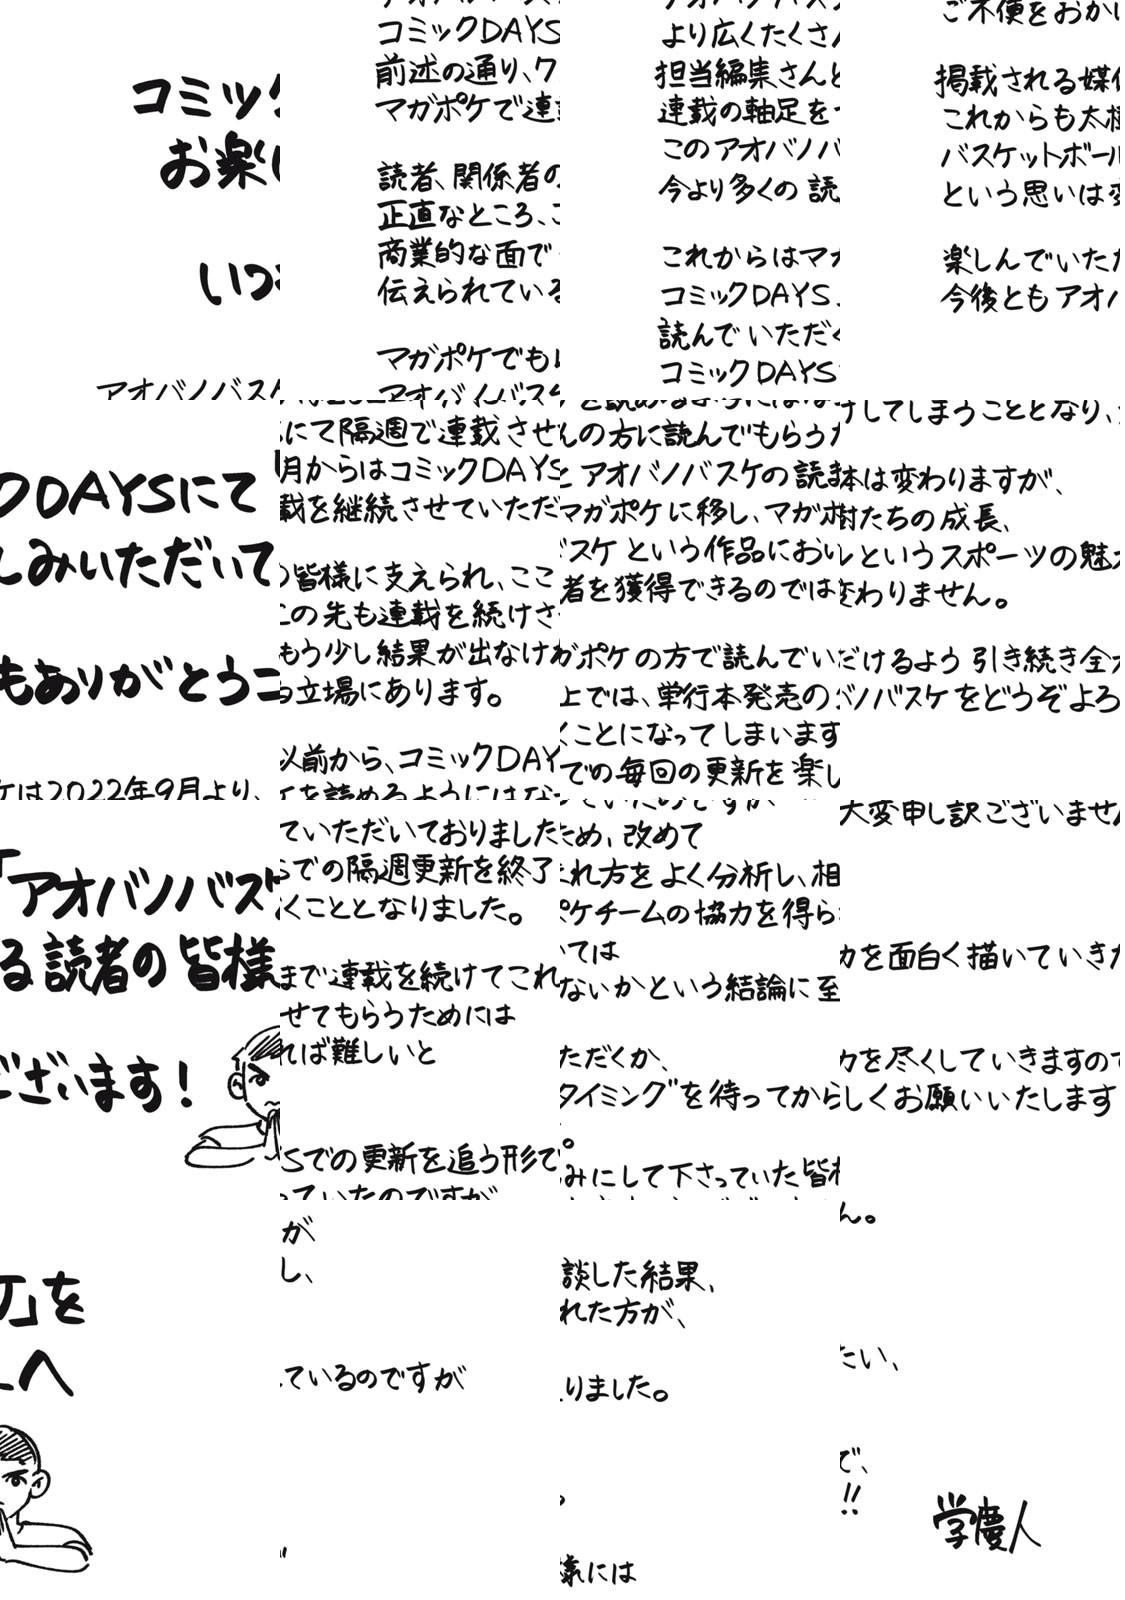 コミック
お楽し
いつ
アオバノバスケ
コミックDAYS
前述の通り、ク
マガポケで連
読者、関係者の
正直なところ、こ
商業的な面で
伝えられている
マガポケでも
アオバノバスケ
より広くたくさん
担当編集さんと
連載の軸足を
このアオバノバ
今より多くの読
これからはマガ
コミックDAYS
読んでいただく
コミックDAYS
ご不便をおかけ
掲載される媒体
これからも大樹
バスケットボール
という思いは変
楽しんでいただ
今後ともアオバ
クDAYSにて
しみいただいて
もありがとうご
ケは2022年9月より、
にて隔週で連載させ
月からはコミックDAYS
載を継続させていただ
の皆様に支えられ、ここ
この先も連載を続けさ
もう少し結果が出なけれ
る立場にあります。
以前から、コミックDAY
ケを読めるようにはな
んの方に読んでもらうた
と アオバノバスケの読ま
マガポケに移し、マガポ
バスケという作品におい
者を獲得できるのでは
ガポケの方で読んでいた
上では、単行本発売の
くことになってしまいます
での毎回の更新を楽し
けしてしまうこととなり、
体は変わりますが、
樹たちの成長、
ルというスポーツの魅力
変わりません。
だけるよう引き続き全力
バノバスケをどうぞよろ
「アオバノバスケ
る読者の皆様
ございます！
ていただいておりました
Sでの隔週更新を終了
くこととなりました。
まで連載を続けてこれ
せてもらうためには
れば難しいと
Sでの更新を追う形で
っていたのですが
ため、改めて
まれ方をよく分析し、相
ポケチームの協力を得ら
いては
ないかという結論に至
ただくか、
タイミングを待ってから
。
みにして下さっていた皆様
大変申し訳ございません
力を面白く描いていきた
力を尽くしていきますので
しくお願いいたします
ケ」を
へ
が
し、
ているのですが
談した結果、
れた方が、
りました。
。
様には
ん。
たい、
で、
!!
学慶人